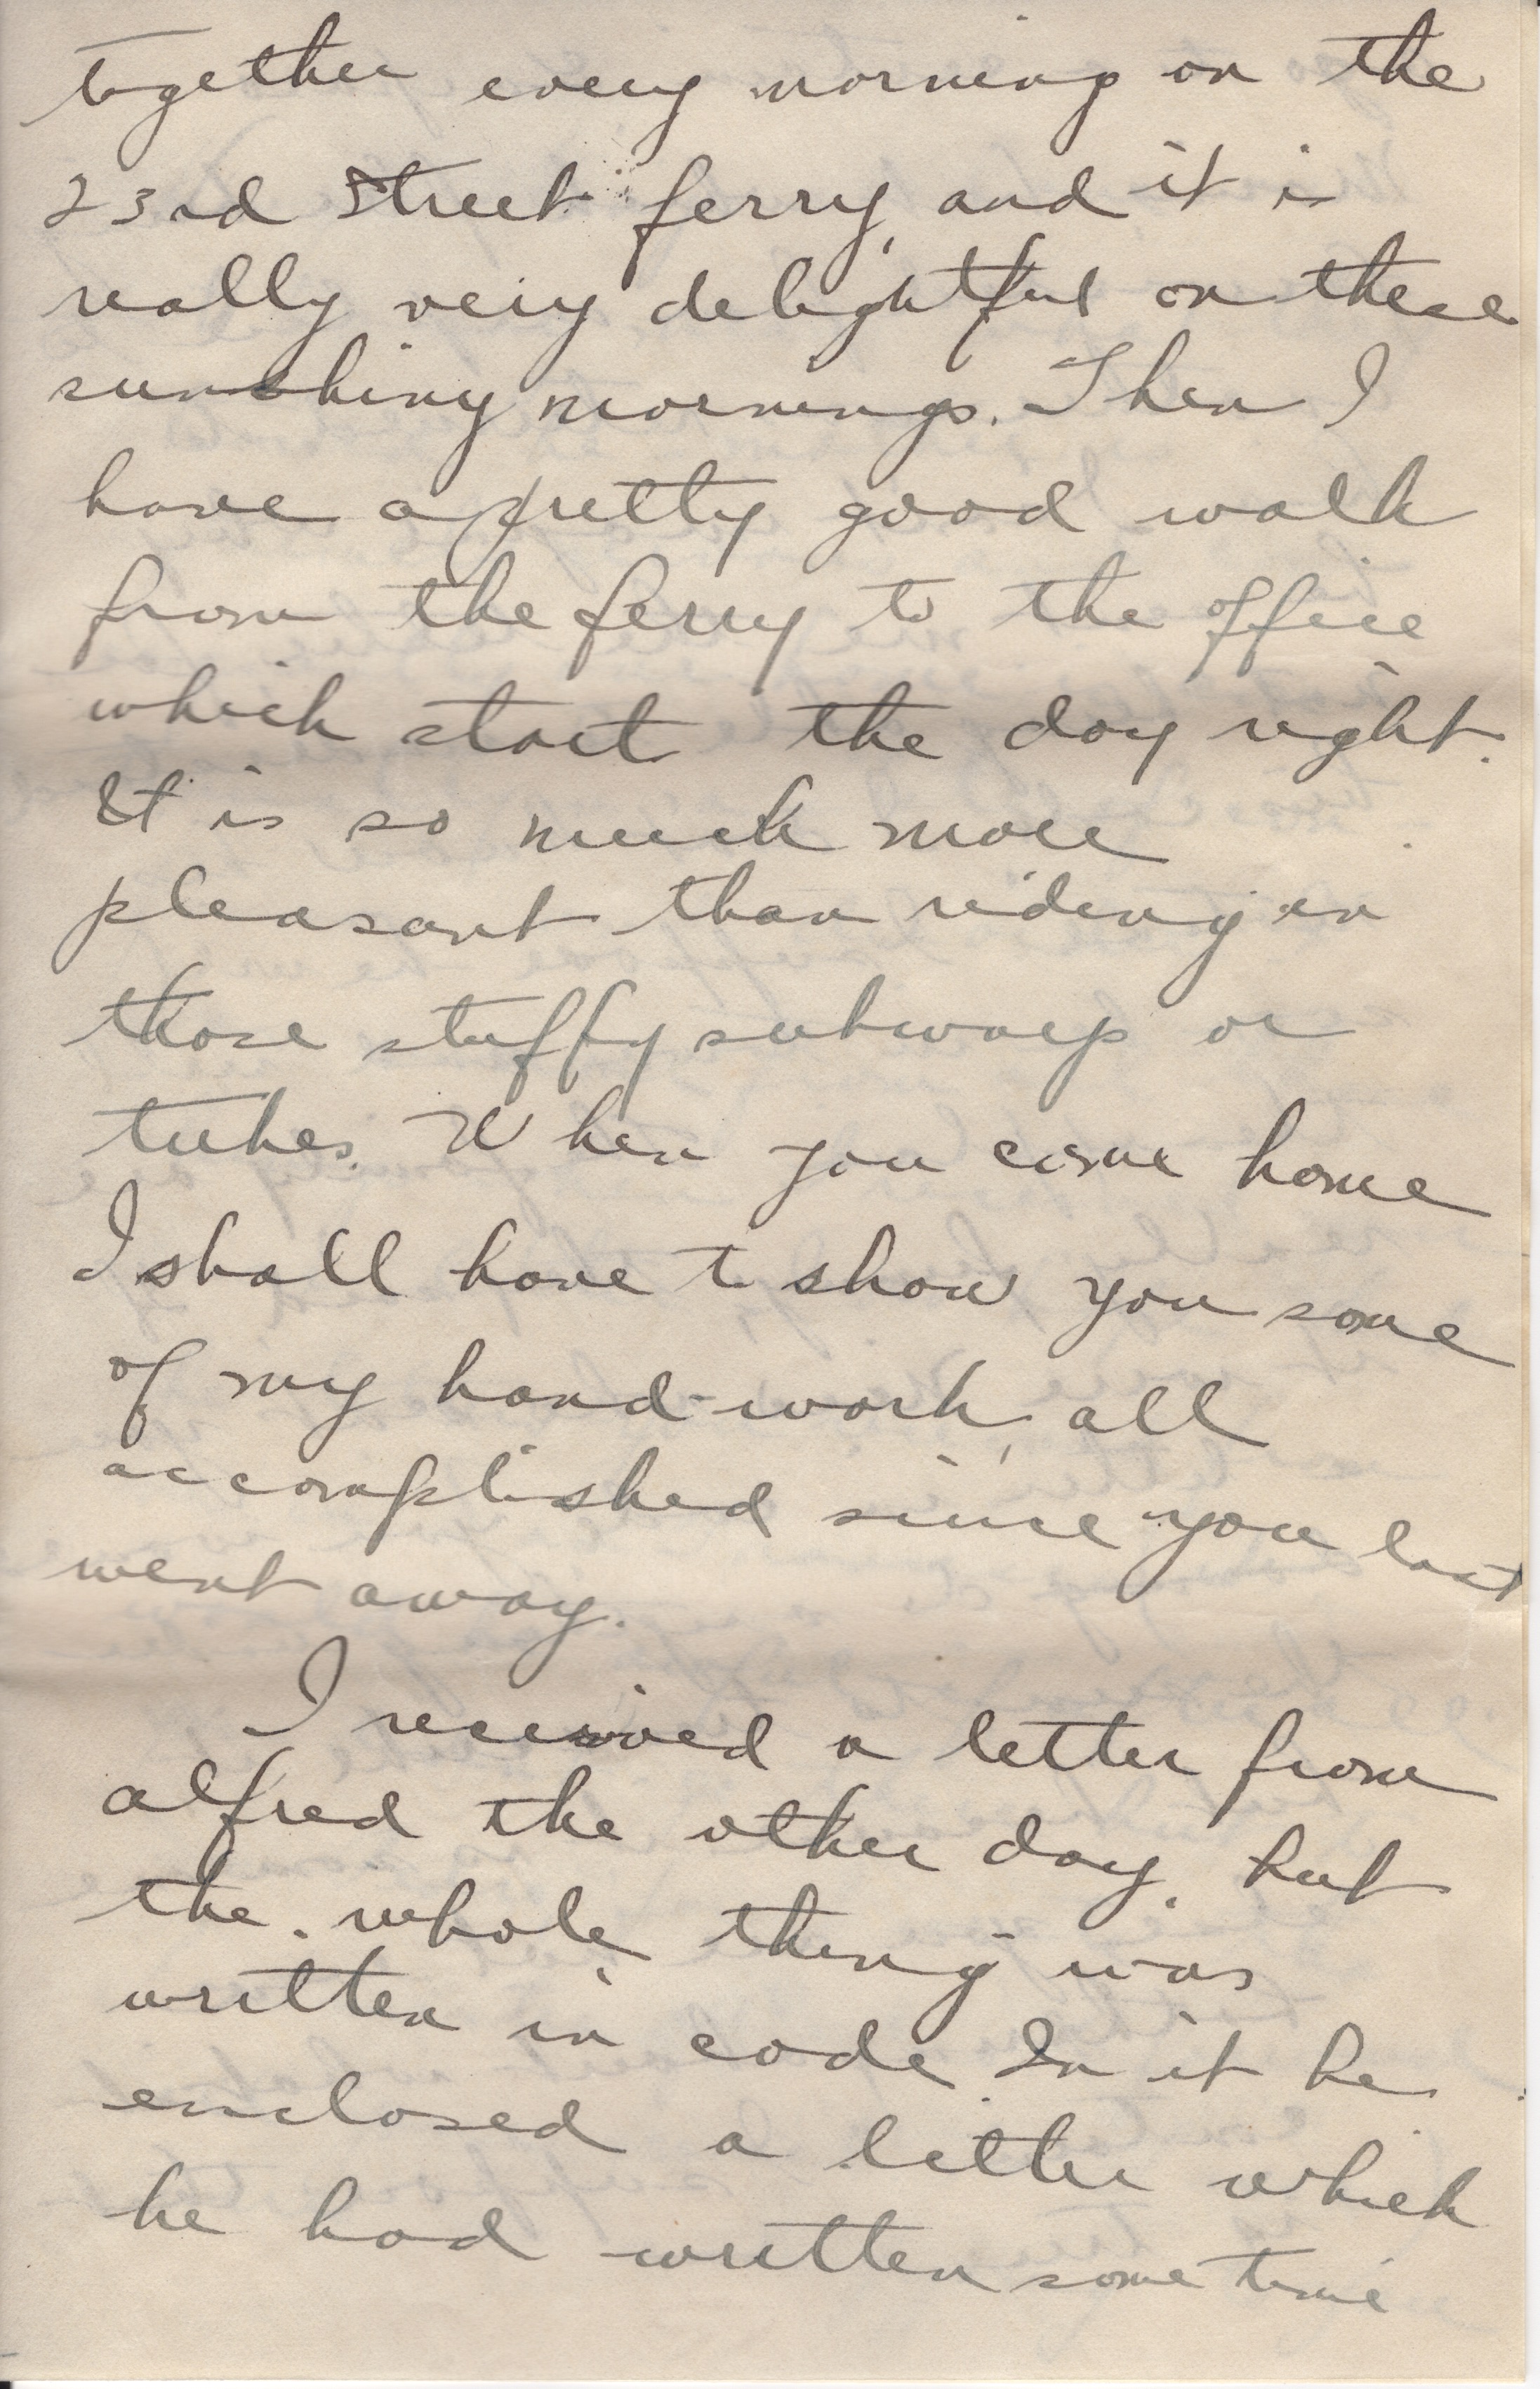 together every morning on the
23rd Street ferry, and it is
really very delightful on these
sunshiny mornings. Then I
have a pretty good walk
from the ferry to the office
which start the day right.
It is so much more
pleasant than riding in
those stuffy subways or
tubes. When you come home
I shall have to show you some
of my hand-work, all
accomplished since you last
went away.
I received a letter from
Alfred the other day, but
the whole thing was
written in code. In it he
enclosed a letter which
he had written some time